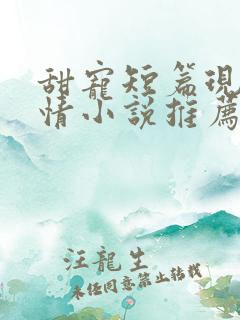 甜寵短篇現
情小說推薦
汪龍生
未经同意禁止转载